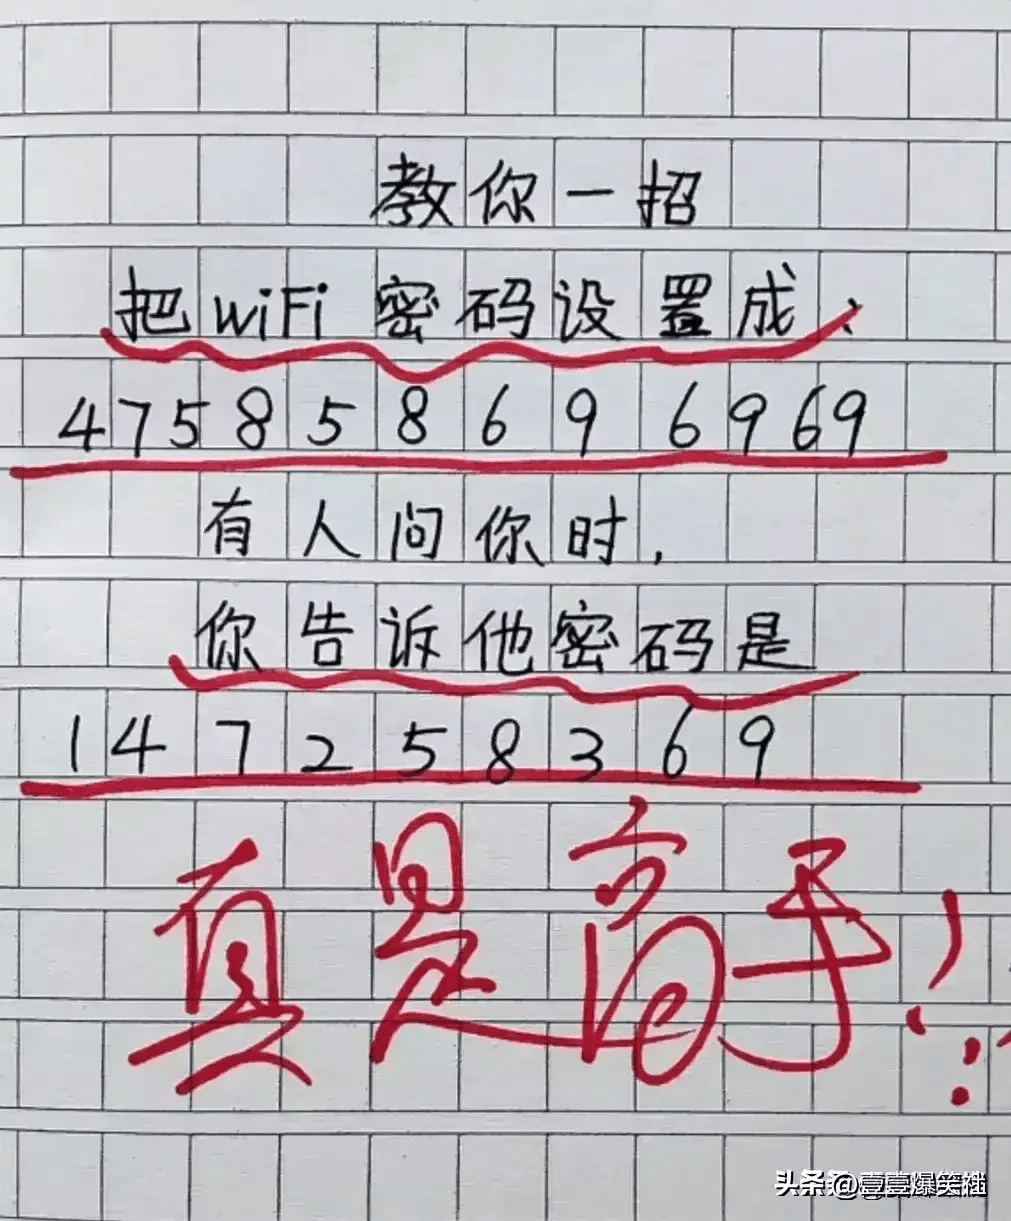 教你一招
把wiFi密码设置成、
475858696969
有人问你时,
你告诉他密码是
147258369
真是高手!
头条 @壹壹爆笑社